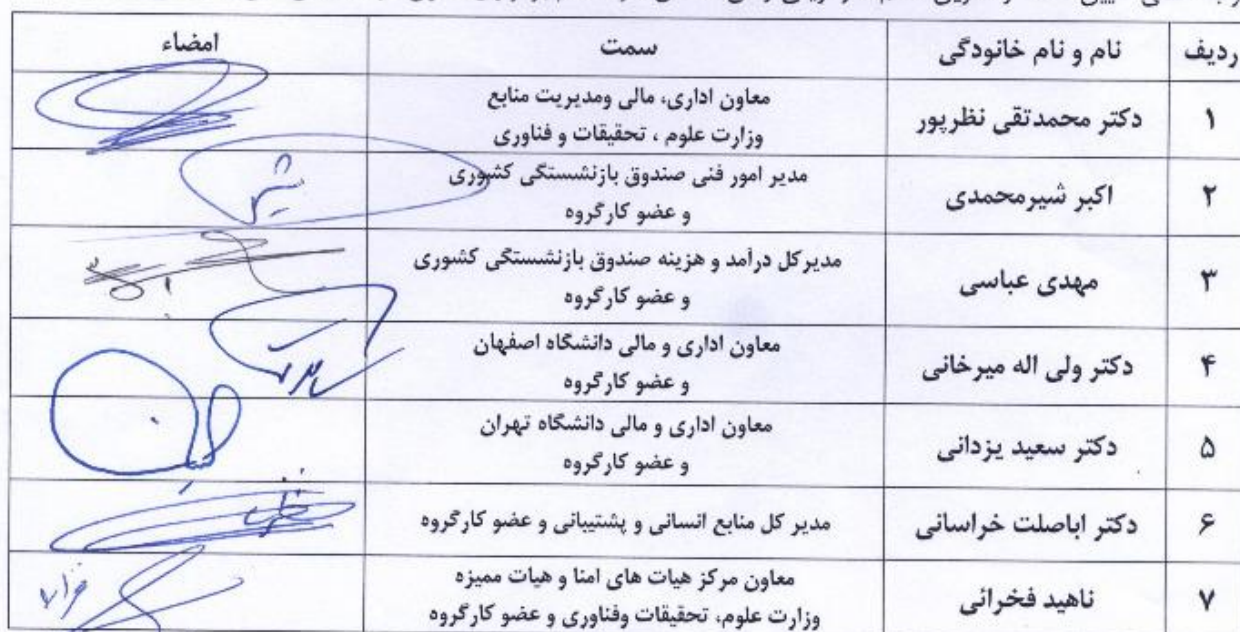 ردیف نام و نام خانودگی سمت امضاء
۱ دکتر محمدتقی نظرپور معاون اداری، مالی ومدیریت منابع
وزارت علوم ، تحقیقات و فناوری
۲ اکبر شیرمحمدی مدیر امور فنی صندوق بازنشستگی کشوری
و عضو کارگروه
۳ مهدی عباسی مدیرکل درآمد و هزینه صندوق بازنشستگی کشوری
و عضو کارگروه
۴ دکتر ولی اله میرخانی معاون اداری و مالی دانشگاه اصفهان
و عضو کارگروه
۵ دکتر سعید یزدانی معاون اداری و مالی دانشگاه تهران
و عضو کارگروه
۶ دکتر اباصلت خراسانی مدیر کل منابع انسانی و پشتیبانی و عضو کارگروه
۷ ناهید فخرائی معاون مرکز هیات های امنا و هیات ممیزه
وزارت علوم، تحقیقات وفناوری و عضو کارگروه